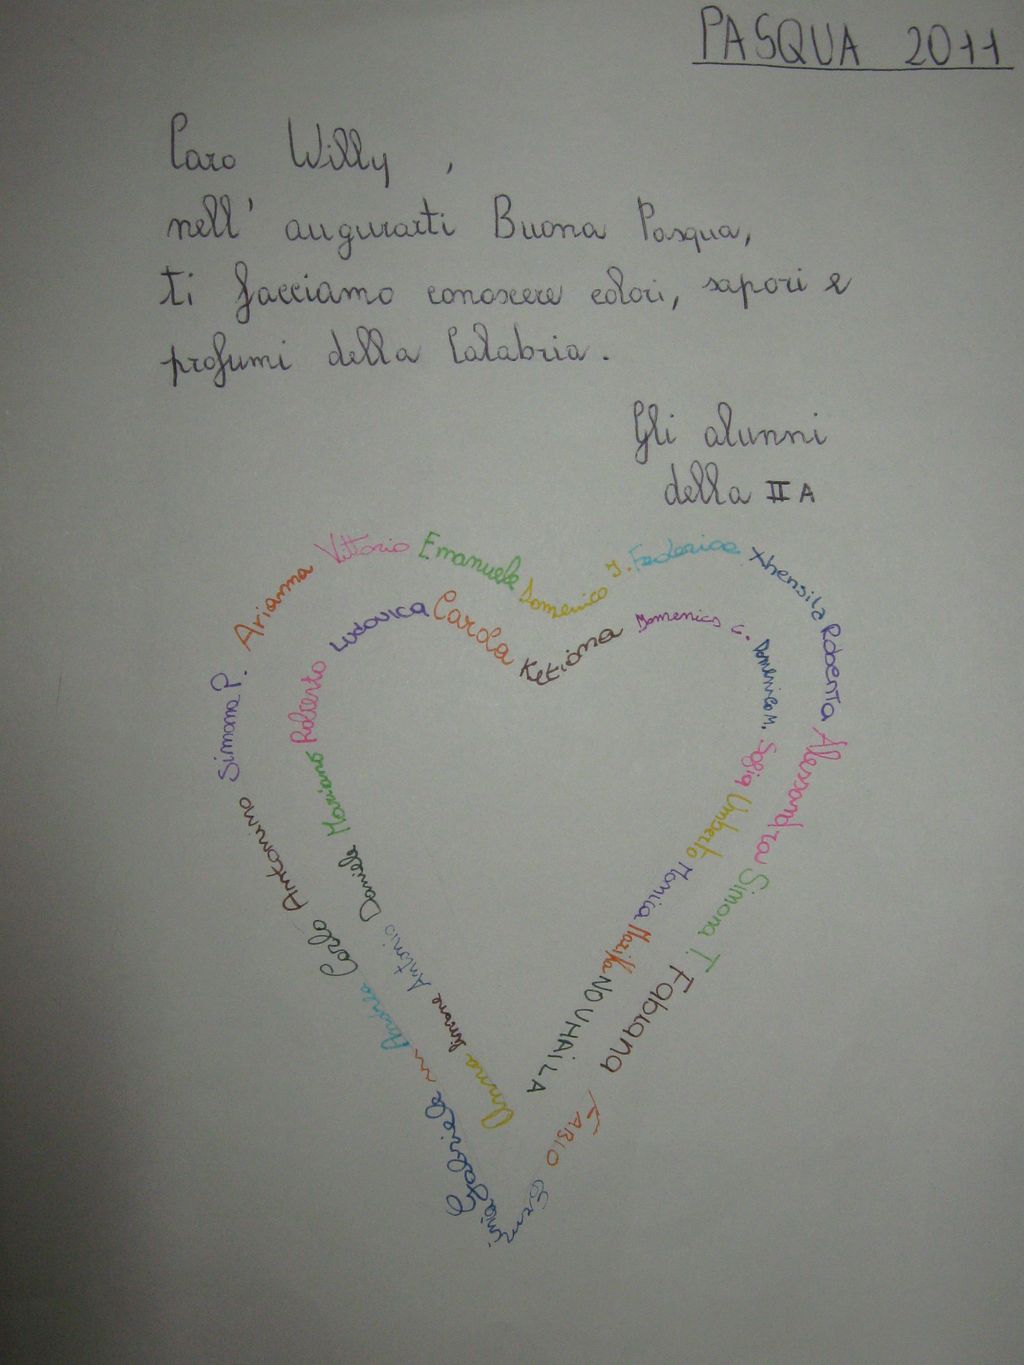 PASQUA 2011
Caro Willy,
nell' augurarti Buona Pasqua,
ti facciamo conoscere colori, sapori e
profumi della Calabria.
Gli alunni
della II A
Simona P.
Arianna
Vittorio
Emanuele
Domenico J.
Federica
Xhensila
Roberta
Alessandra
Simona T.
Fabiana
FABIO
Gabriele
Andrea
Carlo
Antonino
Ludovica
Carola
Ketiona
Domenico C.
Domenico M.
Sofia
Umberto
Monica
Marika
NOUHAILA
Anna
Simone
Antonio
Daniele
Mariano
Roberto